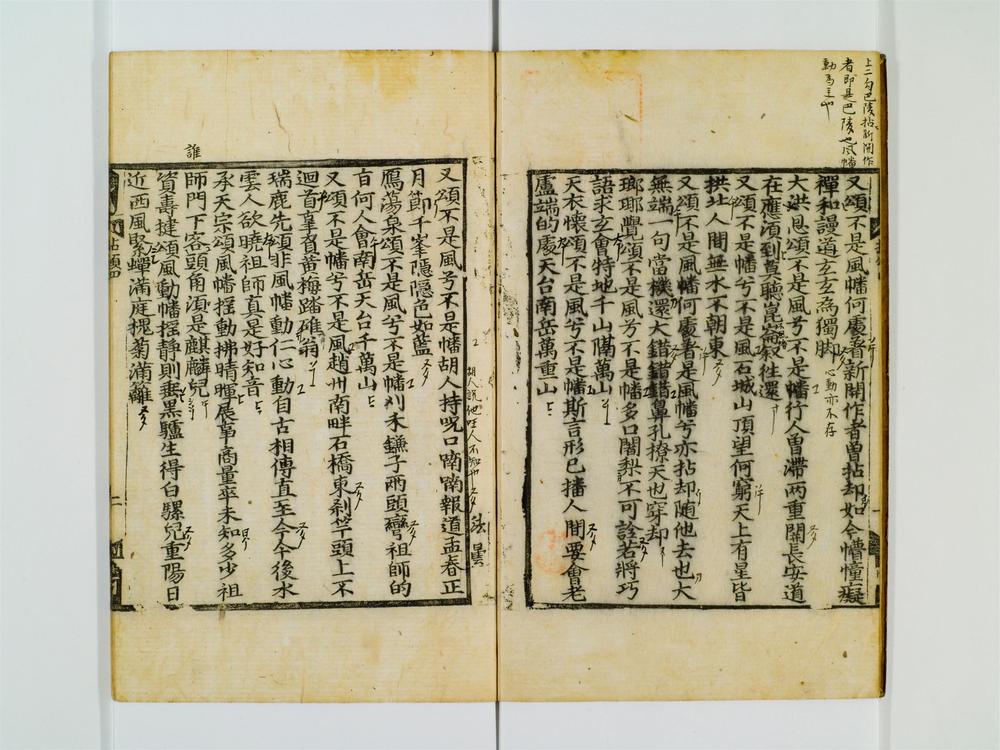 上二句巴陵拈新開作
者即是巴陵也風幡
動為主也
又頌不是風幡何處著新開作者曾拈却如今懵憧癡
禪和謾道玄玄為獨脚
心動亦不存
大洪恩頌不是風兮不是幡行人曾滯兩重關長安道
在應須到莫聽崑崙敘往還
又頌不是幡兮不是風石城山頂望何窮天上有星皆
拱北人間無水不朝東
又頌不是風幡何處著是風幡兮亦拈却随他去也大
無端一句當機還大錯錯錯鼻孔撩天也穿却
瑯瑘覺頌不是風兮不是幡多口闍梨不可詮若將巧
語求玄會特地千山隔萬山
天衣懷頌不是風兮不是幡斯言形已播人間要會老
盧端的處天台南岳萬重山
又頌不是風兮不是幡胡人持呪口喃喃報道孟春正
月節千峯隱隱色如藍
鴈蕩泉頌不是風兮不是幡刈禾鐮子兩頭彎祖師的
旨何人會南岳天台千萬山
又頌不是幡兮不是風趙州南畔石橋東刹竿頭上不
迴首辜負黃梅踏碓翁
瑞鹿先頌非風幡動仁心動自古相傳直至今今後水
雲人欲曉祖師真是好知音
承天宗頌風幡揺動拂晴暉展事商量卒未知多少祖
師門下客頭角須是麒麟兒
誰
資壽捷頌風動幡揺靜則垂黑驢生得白騾兒重陽日
近西風緊蟬滿庭槐菊滿籬